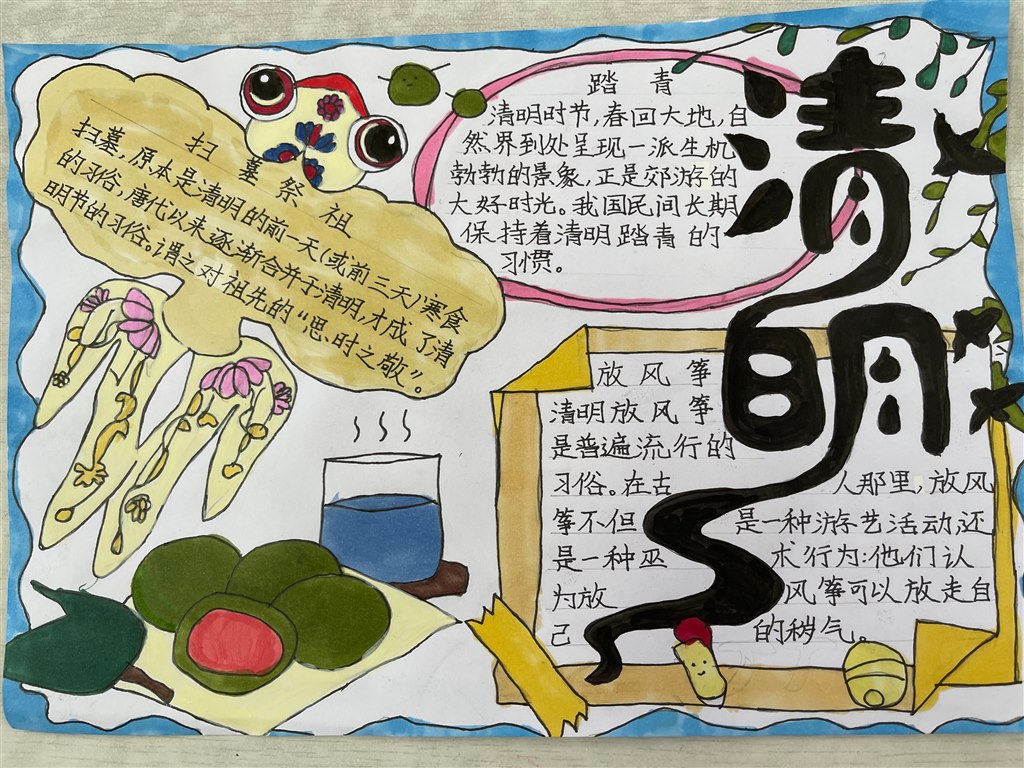 清明
扫墓祭祖
扫墓,原本是清明的前一天(或前三天)寒食
的习俗,唐代以来逐渐合并于清明,才成了清
明节的习俗。谓之对祖先的“思时之敬”。
踏青
清明时节,春回大地,自
然界到处呈现一派生机
勃勃的景象,正是郊游的
大好时光。我国民间长期
保持着清明踏青的
习惯。
放风筝
清明放风筝
是普遍流行的
习俗。在古人那里,放风
筝不但是一种游艺活动还
是一种巫术行为:他们认
为放风筝可以放走自
己的秽气。